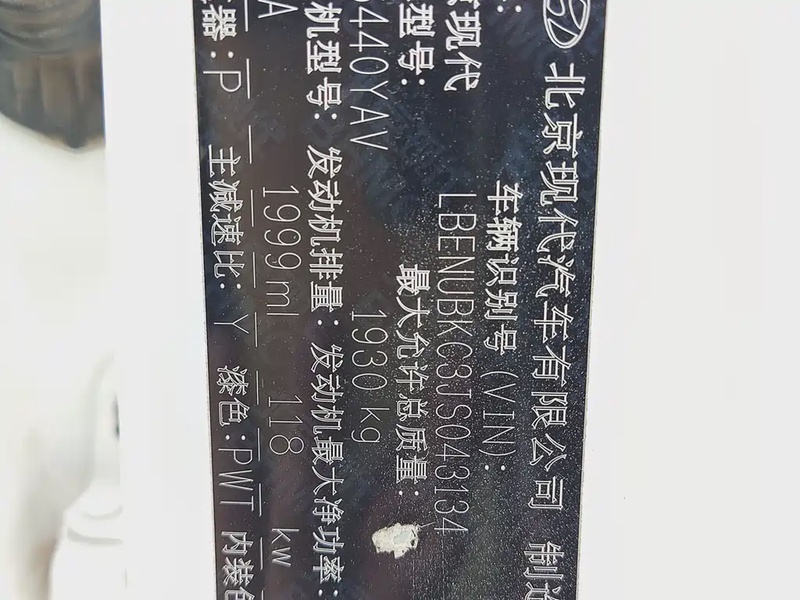 北京现代汽车有限公司 制造
车辆识别号(VIN):
京现代 LBENUBKC3JS043134
型号: 最大允许总质量:
6440YAV 1930 kg
机型号: 发动机排量: 发动机最大净功率:
A 1999ml 118 kw
器: P 主减速比: Y 漆色: PWT 内装色